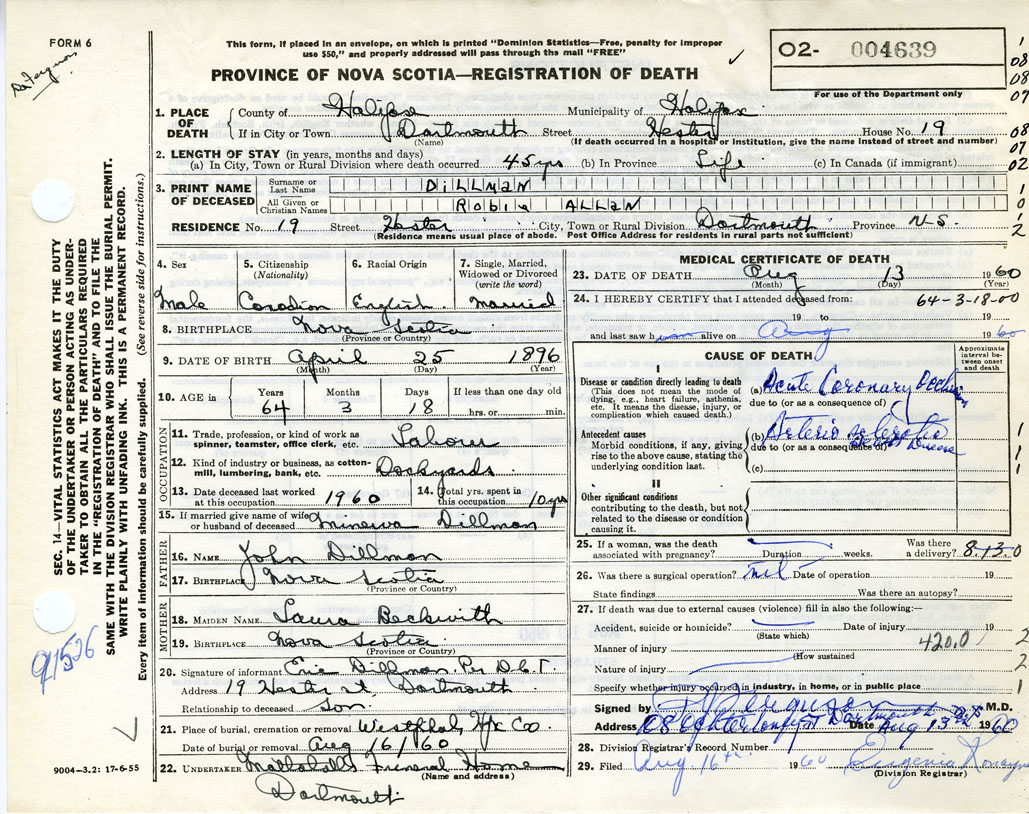 FORM 6
Dr Ferguson
This form, if placed in an envelope, on which is printed "Dominion Statistics—Free, penalty for improper
use $50," and properly addressed will pass through the mail "FREE"
02- 004639
For use of the Department only
PROVINCE OF NOVA SCOTIA—REGISTRATION OF DEATH
1. PLACE OF DEATH
County of Halifax Municipality of Halifax
If in City or Town Dartmouth Street Hester House No. 19
(Name) (If death occurred in a hospital or institution, give the name instead of street and number)
2. LENGTH OF STAY (in years, months and days)
(a) In City, Town or Rural Division where death occurred 45 yrs (b) In Province Life (c) In Canada (if immigrant)
3. PRINT NAME OF DECEASED
Surname or Last Name DILLMAN
All Given or Christian Names ROBIE ALLAN
RESIDENCE No. 19 Street Hester City, Town or Rural Division Dartmouth Province N-S-
(Residence means usual place of abode. Post Office Address for residents in rural parts not sufficient)
4. Sex
Male
5. Citizenship (Nationality)
Canadian
6. Racial Origin
English
7. Single, Married, Widowed or Divorced (write the word)
Married
8. BIRTHPLACE Nova Scotia
(Province or Country)
9. DATE OF BIRTH April 25 1896
(Month) (Day) (Year)
10. AGE in
Years Months Days If less than one day old
64 3 18 hrs. or min.
OCCUPATION
11. Trade, profession, or kind of work as
spinner, teamster, office clerk, etc. Labour
12. Kind of industry or business, as cotton-
mill, lumbering, bank, etc. Dockyards
13. Date deceased last worked
at this occupation 1960
14. Total yrs. spent in
this occupation 10 yrs
15. If married give name of wife
or husband of deceased Minerva Dillman
FATHER
16. NAME John Dillman
17. BIRTHPLACE Nova Scotia
(Province or Country)
MOTHER
18. MAIDEN NAME Laura Beckwith
19. BIRTHPLACE Nova Scotia
(Province or Country)
20. Signature of informant Eric Dillman Per D.C.T.
Address 19 Hester st Dartmouth
Relationship to deceased Son
21. Place of burial, cremation or removal Westphal, Hfx Co
Date of burial or removal Aug 16/60
22. UNDERTAKER Mattatall's Funeral Home
(Name and address)
Dartmouth
MEDICAL CERTIFICATE OF DEATH
23. DATE OF DEATH Aug 13 1960
(Month) (Day) (Year)
24. I HEREBY CERTIFY that I attended deceased from: 64-3-18-00
19 to 19
and last saw him alive on Aug 1960
CAUSE OF DEATH
Approximate interval between onset and death
I
Disease or condition directly leading to death
(This does not mean the mode of
dying, e.g., heart failure, asthenia,
etc. It means the disease, injury, or
complication which caused death.)
(a) Acute Coronary Occlusion
due to (or as a consequence of)
Antecedent causes
Morbid conditions, if any, giving
rise to the above cause, stating the
underlying condition last.
(b) Arterio sclerotic Heart Disease
due to (or as a consequence of)
(c)
II
Other significant conditions
contributing to the death, but not
related to the disease or condition
causing it.
25. If a woman, was the death
associated with pregnancy? Duration weeks.
Was there
a delivery? 8-13-0
26. Was there a surgical operation? nil Date of operation 19
State findings Was there an autopsy?
27. If death was due to external causes (violence) fill in also the following:—
Accident, suicide or homicide? Date of injury 19
(State which)
Manner of injury 420.0
(How sustained
Nature of injury
Specify whether injury occurred in industry, in home, or in public place
Signed by Ferguson M.D.
Address Dartmouth Date Aug 13th 1960
28. Division Registrar's Record Number
29. Filed Aug 16th 1960 Eugenia
(Division Registrar)
SEC. 14—VITAL STATISTICS ACT MAKES IT THE DUTY
OF THE UNDERTAKER OR PERSON ACTING AS UNDER-
TAKER TO OBTAIN ALL THE PARTICULARS REQUIRED
IN THE "REGISTRATION OF DEATH" AND TO FILE THE
SAME WITH THE DIVISION REGISTRAR WHO SHALL ISSUE THE BURIAL PERMIT.
WRITE PLAINLY WITH UNFADING INK. THIS IS A PERMANENT RECORD.
Every item of information should be carefully supplied. (See reverse side for instructions.)
91526
9004-3.2: 17-6-55
1
08
08
07
08
07
02
1
0
1
2
1
1
1
2
2
1